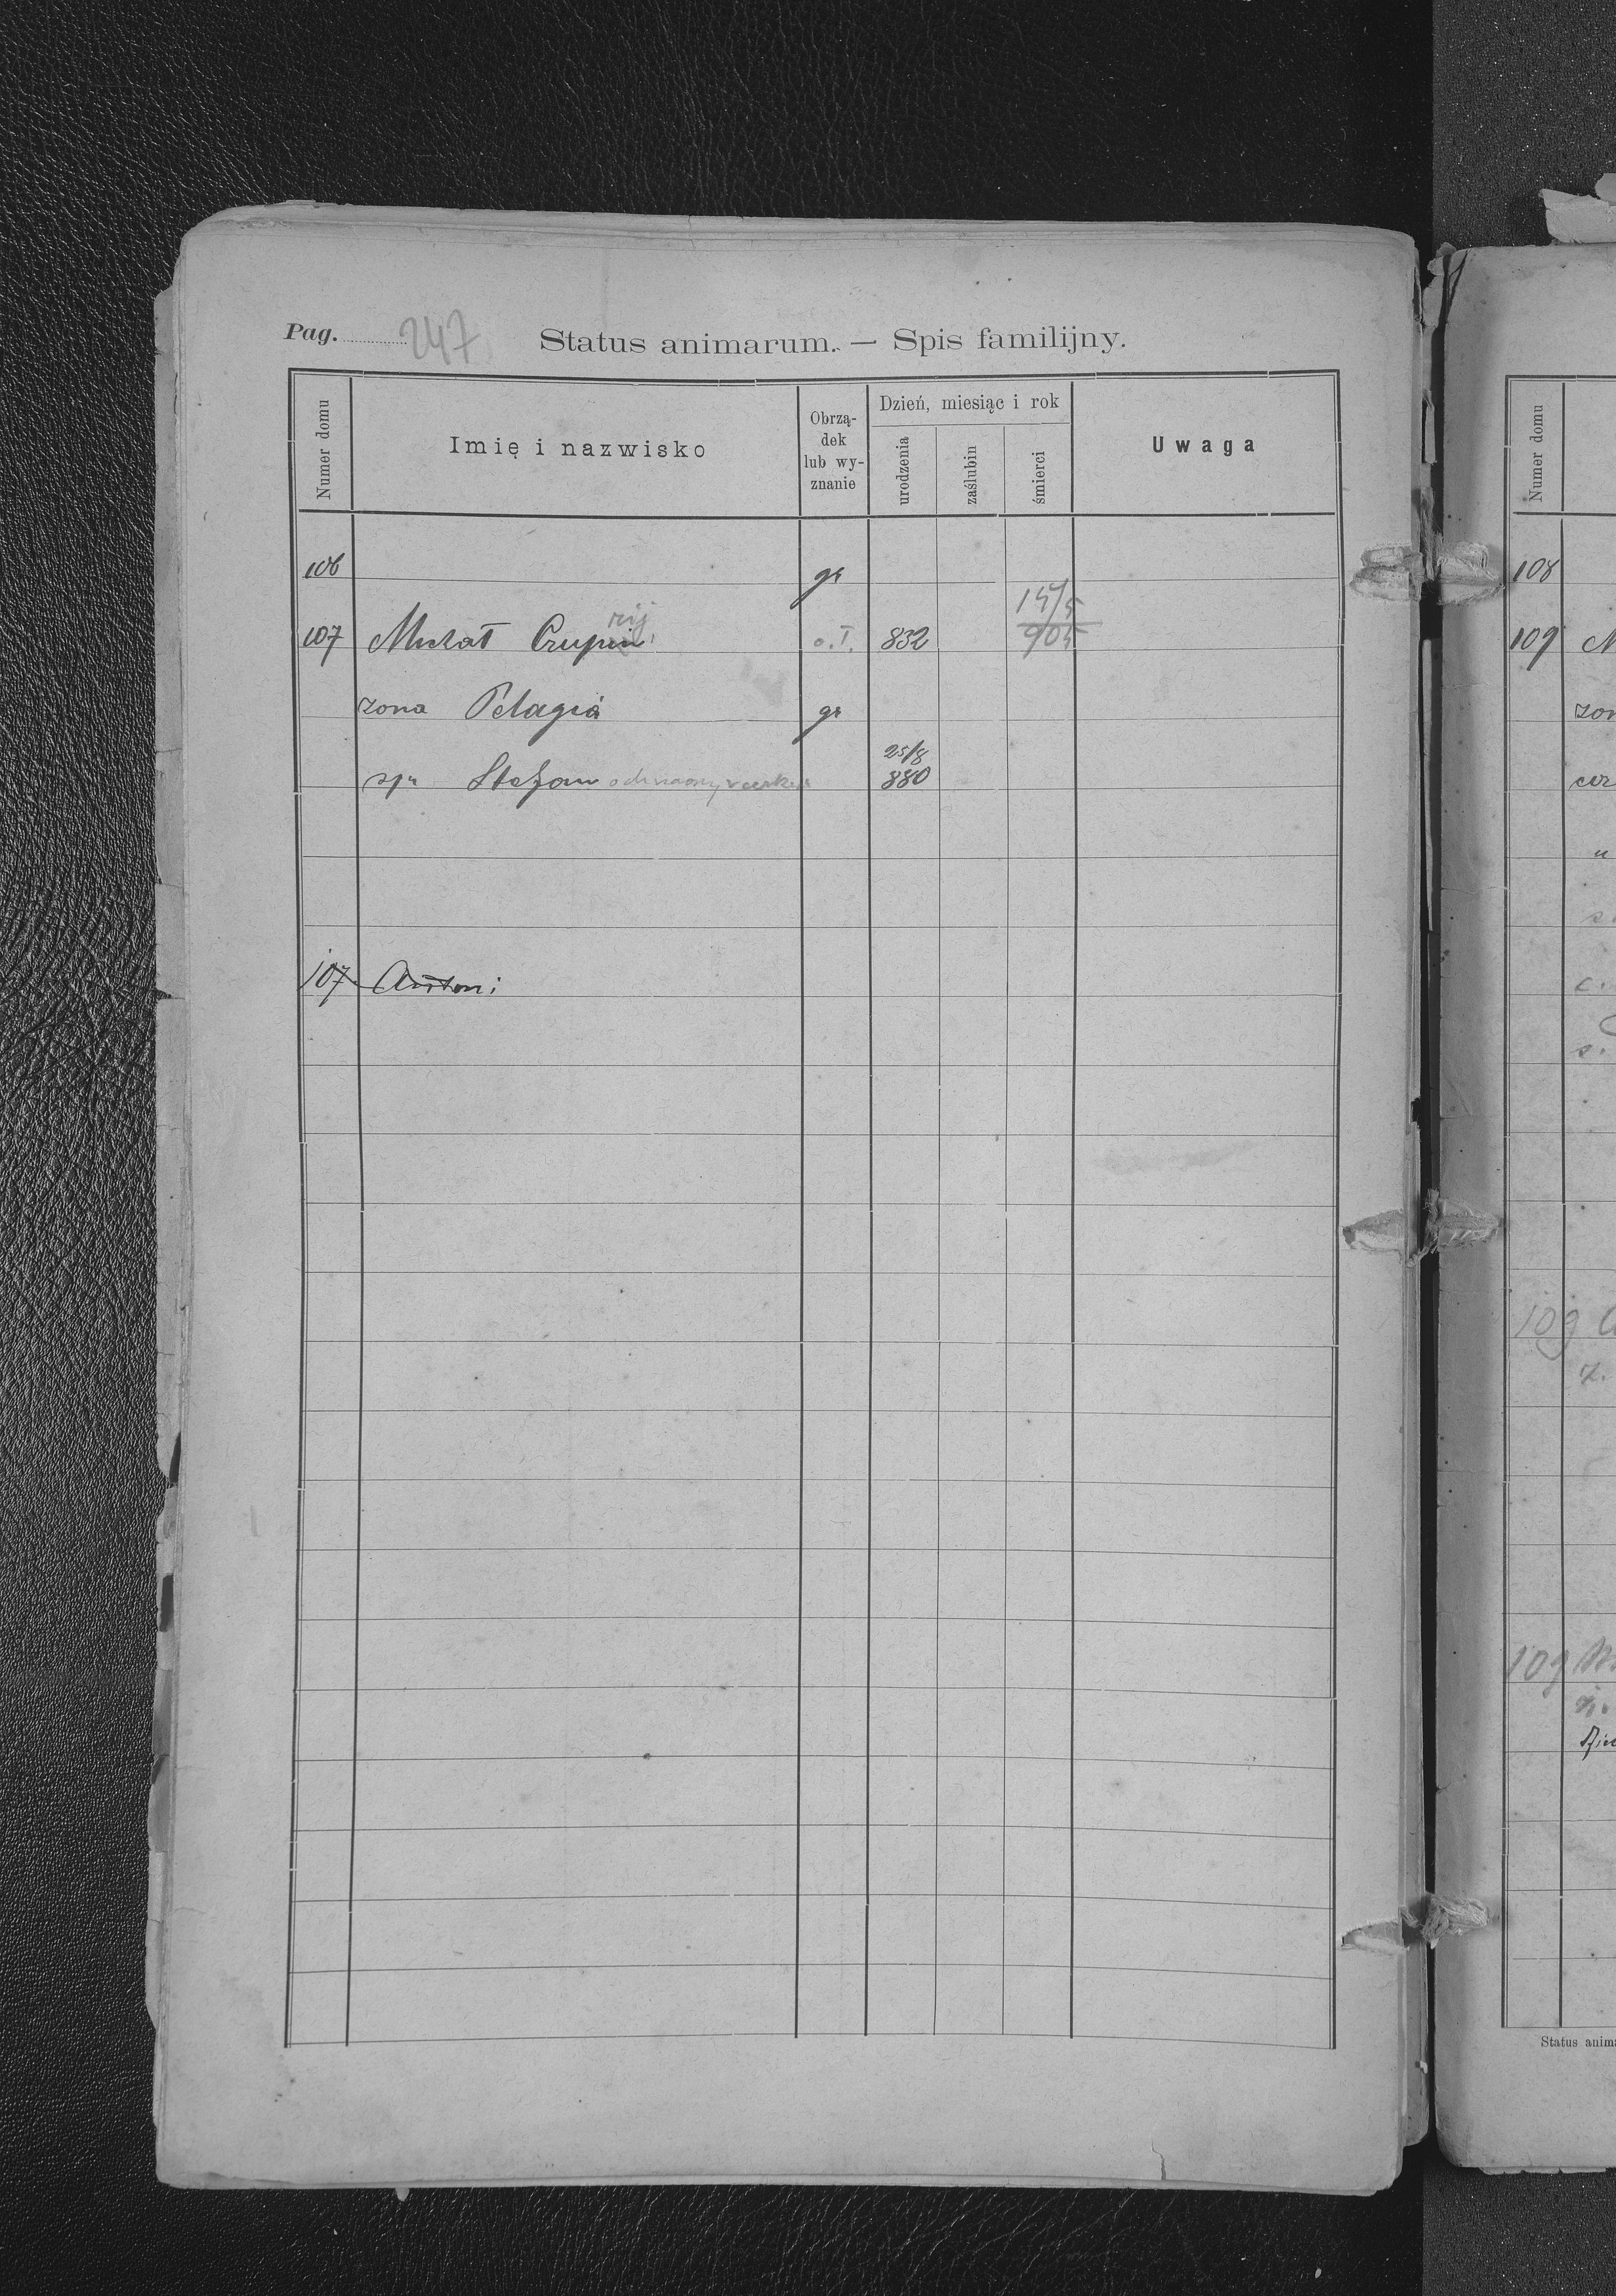 Pag. 247 Status animarum. — Spis familijny.
Numer domu
Imię i nazwisko
Obrzą-
dek
lub wy-
znanie
Dzień, miesiąc i rok
urodzenia
zaślubin
śmierci
Uwaga
106 gr
107 Michał o.ł. 832 905
żona Pelagia gr
syn Stefan 25/8 880
107 Antoni
Numer domu
108
109
109
109
Status anima